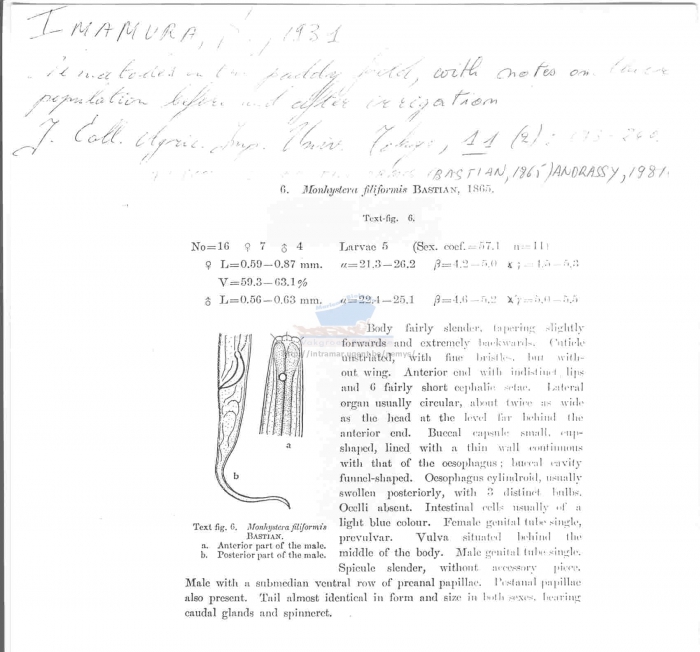 IMAMURA, , 1931
Nematodes in the paddy field, with notes on their
population before and after irrigation
J. Coll. Agric. Imp. Univ. Tokyo, 11 (2):
(BASTIAN, 1865) ANDRASSY, 1981.
6. Monhystera filiformis BASTIAN, 1865.
Text-fig. 6.
No=16 ♀ 7 ♂ 4 Larvae 5 (Sex. coef.=57.1 n=11)
♀ L=0.59–0.87 mm. α=21.3–26.2 β=4.2–5.0 γ=4.5–5.3
V=59.3–63.1%
♂ L=0.56–0.63 mm. α=22.4–25.1 β=4.6–5.2 γ=5.0–5.5
Body fairly slender, tapering slightly
forwards and extremely backwards. Cuticle
unstriated, with fine bristles, but with-
out wing. Anterior end with indistinct lips
and 6 fairly short cephalic setae. Lateral
organ usually circular, about twice as wide
as the head at the level far behind the
anterior end. Buccal capsule small, cup-
shaped, lined with a thin wall continuous
with that of the oesophagus; buccal cavity
funnel-shaped. Oesophagus cylindroid, usually
swollen posteriorly, with 3 distinct bulbs.
Ocelli absent. Intestinal cells usually of a
light blue colour. Female genital tube single,
prevulvar. Vulva situated behind the
middle of the body. Male genital tube single.
Spicule slender, without accessory piece.
a
b
Text fig. 6. Monhystera filiformis
BASTIAN.
a. Anterior part of the male.
b. Posterior part of the male.
Male with a submedian ventral row of preanal papillae. Postanal papillae
also present. Tail almost identical in form and size in both sexes, bearing
caudal glands and spinneret.